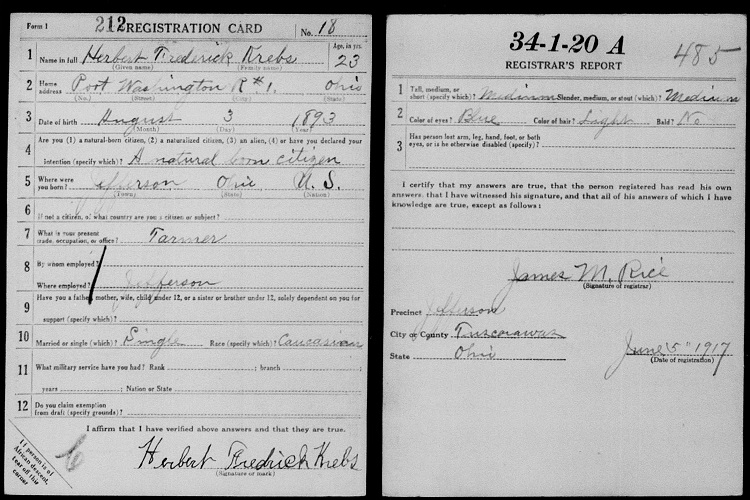 Form 1 212 REGISTRATION CARD No. 18
1 Name in full Herbert Frederick Krebs Age, in yrs. 23
(Given name) (Family name)
2 Home address Port Washington R #1. Ohio
(No.) (Street) (City) (State)
3 Date of birth August 3 1893
(Month) (Day) (Year)
4 Are you (1) a natural-born citizen, (2) a naturalized citizen, (3) an alien, (4) or have you declared your
intention (specify which)? A natural born citizen
5 Where were you born? Jefferson Ohio U. S.
(Town) (State) (Nation)
6 If not a citizen, of what country are you a citizen or subject?
7 What is your present trade, occupation, or office? Farmer
8 By whom employed?
Where employed? Jefferson
9 Have you a father, mother, wife, child under 12, or a sister or brother under 12, solely dependent on you for
support (specify which)?
10 Married or single (which)? Single Race (specify which)? Caucasian
11 What military service have you had? Rank ; branch
years ; Nation or State
12 Do you claim exemption from draft (specify grounds)?
I affirm that I have verified above answers and that they are true.
Herbert Fredrich Krebs
(Signature or mark)
If person is of African descent, tear off this corner
34-1-20 A 485
REGISTRAR'S REPORT
1 Tall, medium, or short (specify which)? Medium Slender, medium, or stout (which)? Medium
2 Color of eyes? Blue Color of hair? Light Bald? No
3 Has person lost arm, leg, hand, foot, or both eyes, or is he otherwise disabled (specify)?
I certify that my answers are true, that the person registered has read his own
answers, that I have witnessed his signature, and that all of his answers of which I have
knowledge are true, except as follows:
James M. Rice
(Signature of registrar)
Precinct Jefferson
City or County Tuscarawas
State Ohio June "5" 1917
(Date of registration)